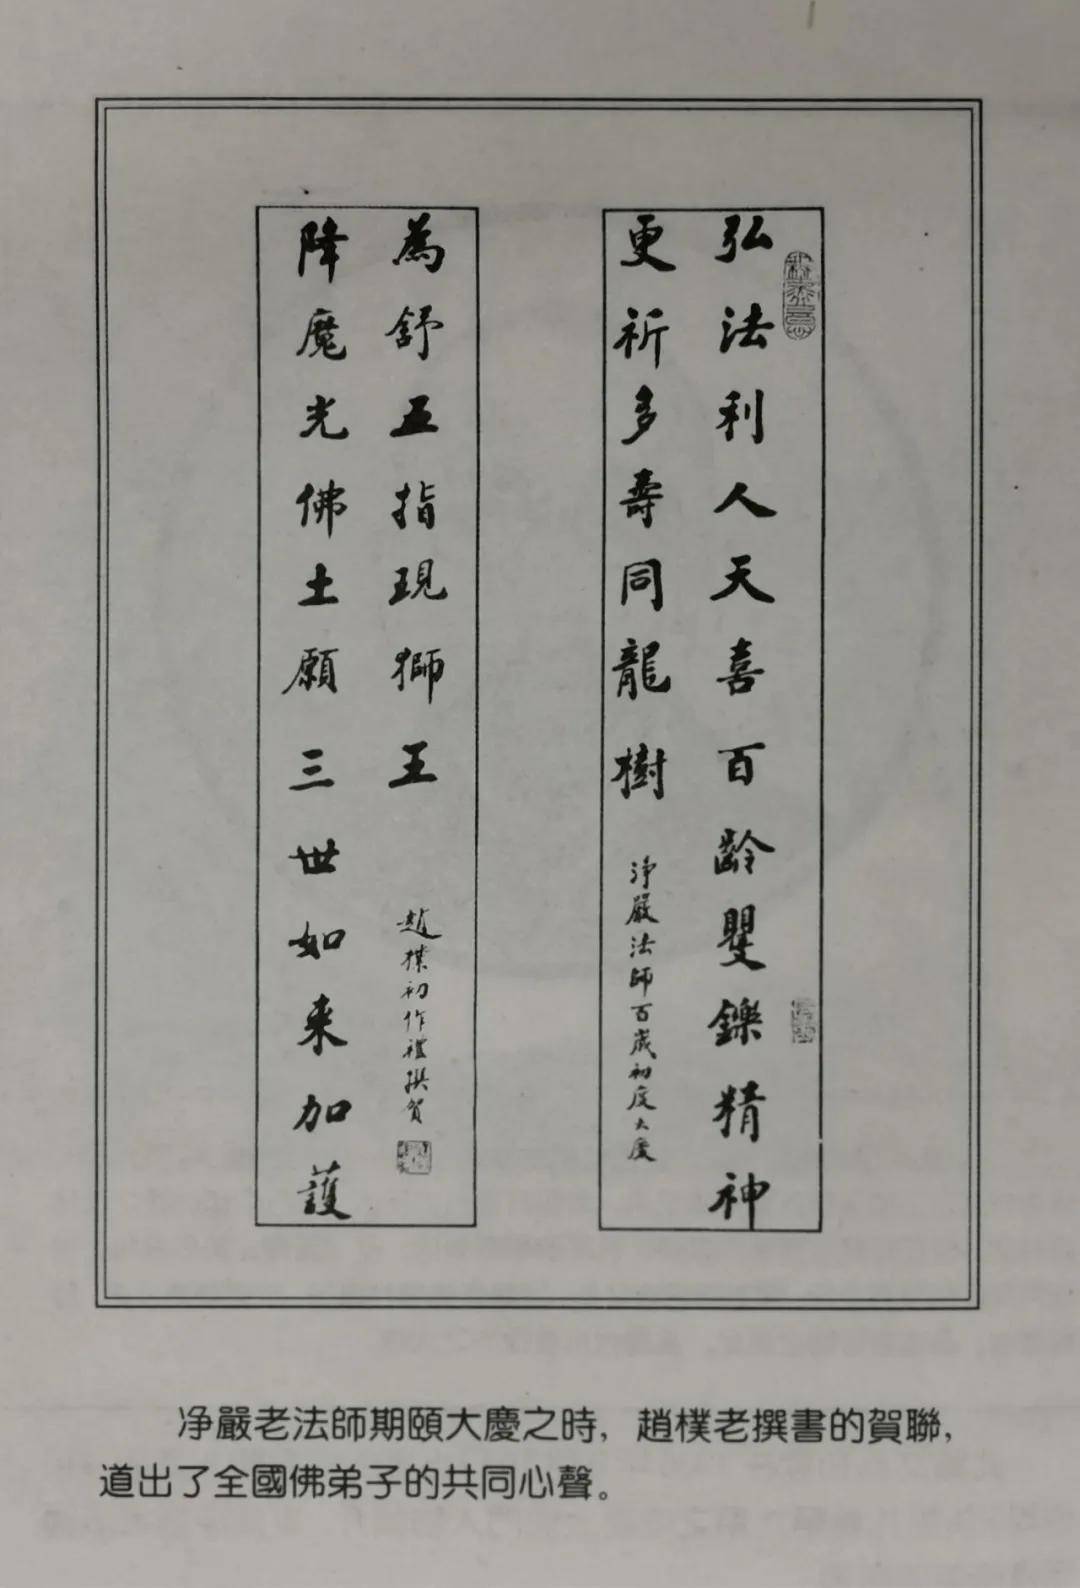 弘法利人天喜百齡矍鑠精神
更祈多壽同龍樹
淨嚴法師百歲初度大慶
降魔光佛土願三世如来加護
為舒五指現獅王
趙樸初作禮撰賀
净嚴老法師期頤大慶之時，趙樸老撰書的賀聯，
道出了全國佛弟子的共同心聲。